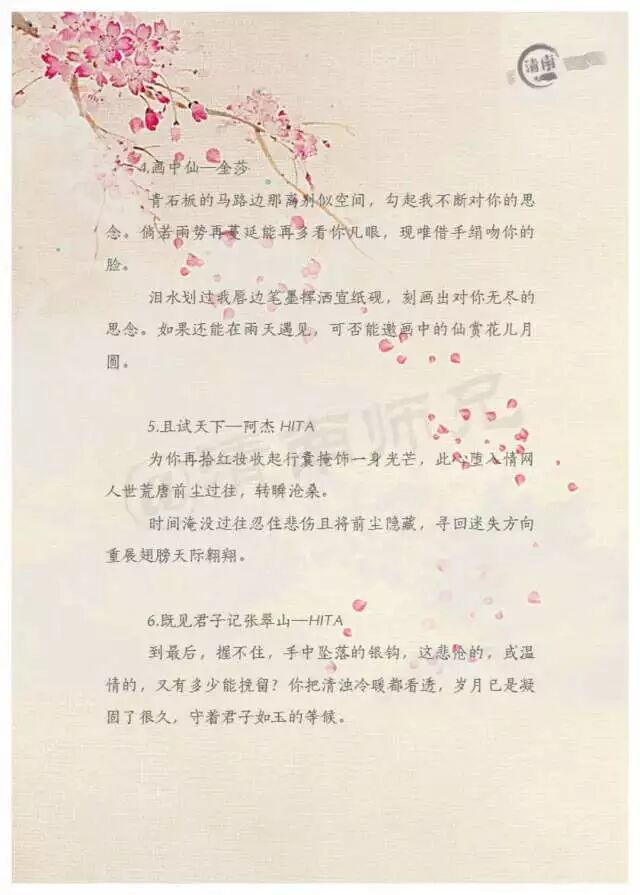 清南
4.画中仙—金莎
青石板的马路边那离别似空间，勾起我不断对你的思
念。倘若雨势再蔓延能再多看你几眼，现唯借手绢吻你的
脸。
泪水划过我唇边笔墨挥洒宣纸砚，刻画出对你无尽的
思念。如果还能在雨天遇见，可否能邀画中的仙赏花儿月
圆。
5.且试天下—阿杰 HITA
为你再拾红妆收起行囊掩饰一身光芒，此心堕入情网
人世荒唐前尘过往，转瞬沧桑。
时间淹没过往忍住悲伤且将前尘隐藏，寻回迷失方向
重展翅膀天际翱翔。
6.既见君子记张翠山—HITA
到最后，握不住，手中坠落的银钩，这悲怆的，或温
情的，又有多少能挽留？你把清浊冷暖都看透，岁月已是凝
固了很久，守着君子如玉的等候。